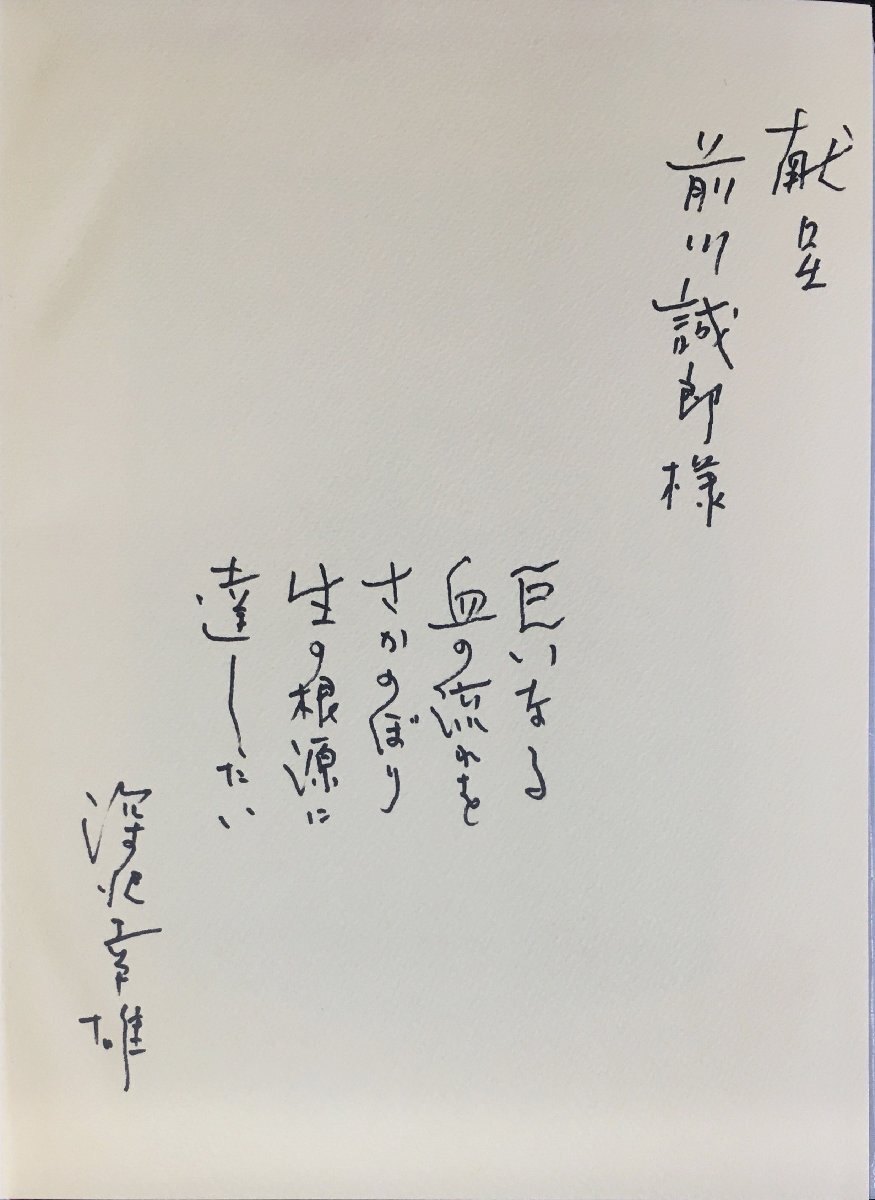 献呈
前川誠郎様
巨いなる
血の流れを
さかのぼり
生の根源に
達したい
深沢幸雄